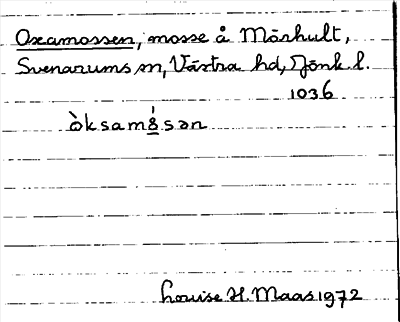 Oxamossen, mosse å Mörhult,
Svenarums sn, Västra hd, Jönk. l.
1036
òksamǻsən
Louise H. Maas 1972